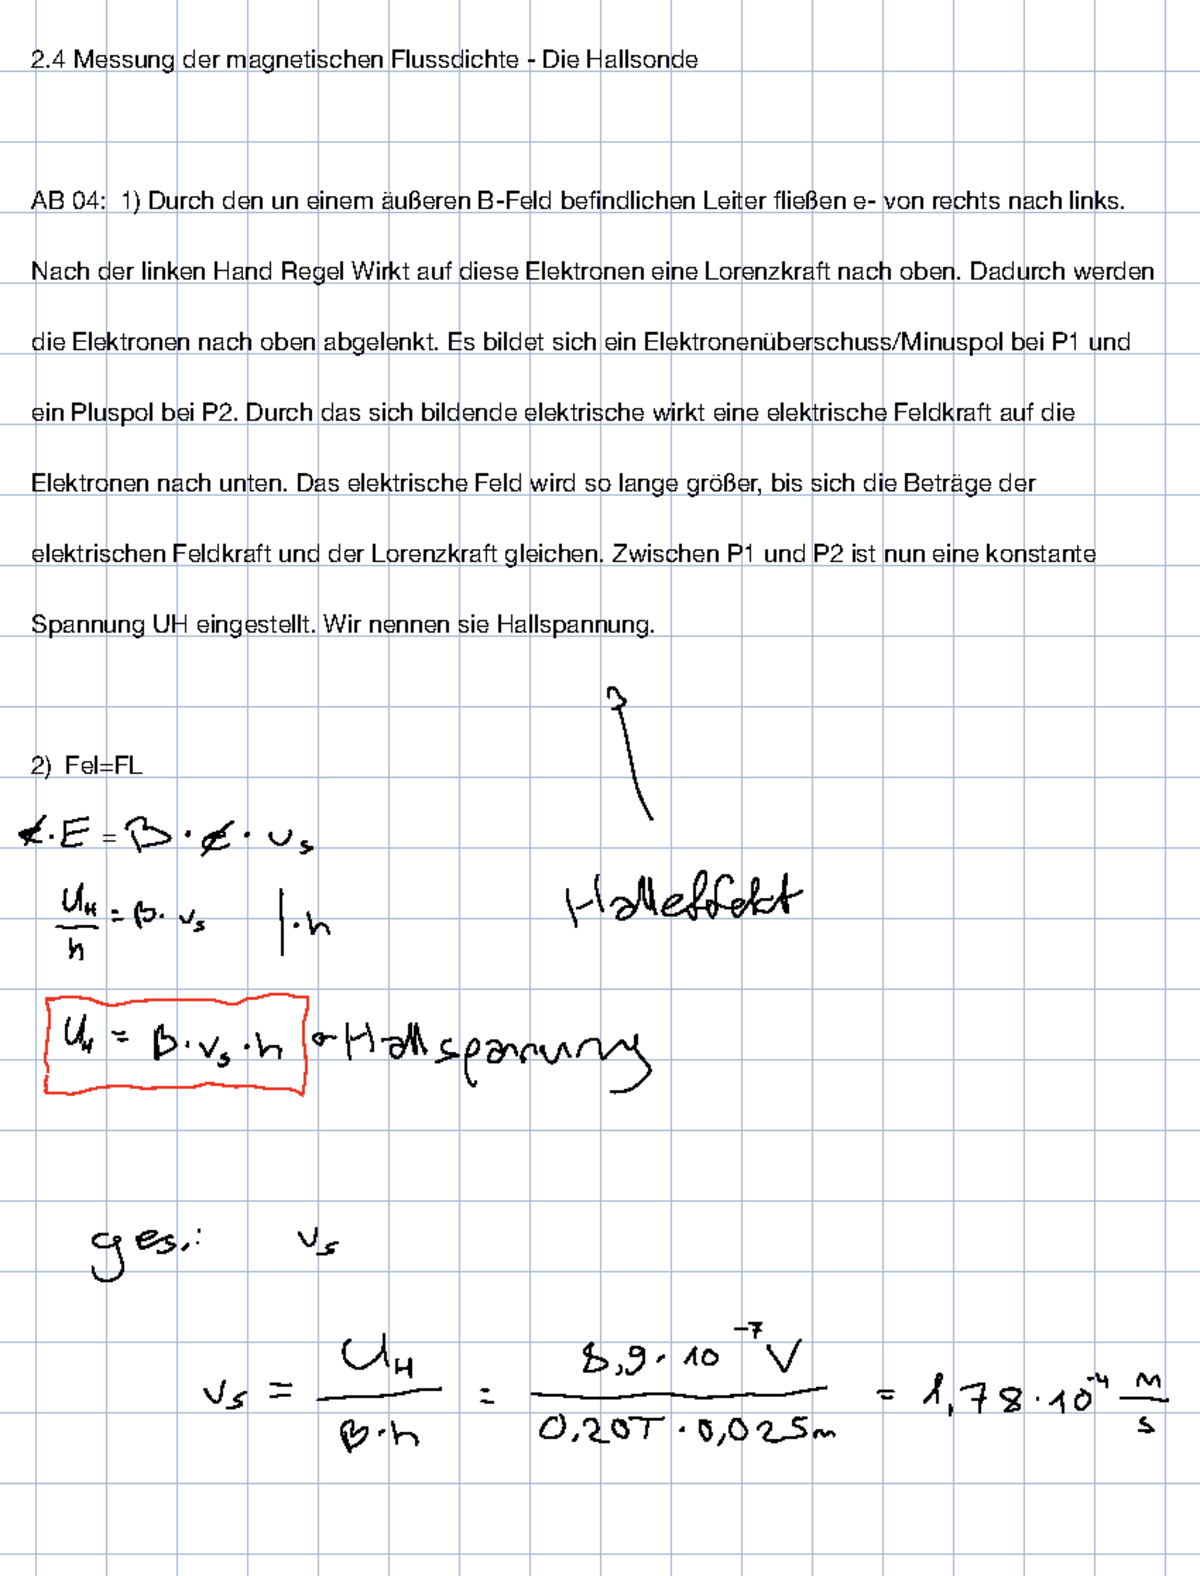 2.4 Messung der magnetischen Flussdichte - Die Hallsonde
AB 04: 1) Durch den un einem äußeren B-Feld befindlichen Leiter fließen e- von rechts nach links.
Nach der linken Hand Regel Wirkt auf diese Elektronen eine Lorenzkraft nach oben. Dadurch werden
die Elektronen nach oben abgelenkt. Es bildet sich ein Elektronenüberschuss/Minuspol bei P1 und
ein Pluspol bei P2. Durch das sich bildende elektrische wirkt eine elektrische Feldkraft auf die
Elektronen nach unten. Das elektrische Feld wird so lange größer, bis sich die Beträge der
elektrischen Feldkraft und der Lorenzkraft gleichen. Zwischen P1 und P2 ist nun eine konstante
Spannung UH eingestellt. Wir nennen sie Hallspannung.
2) Fel=FL
e · E = B · e · vs
UH/h = B · vs | · h
Halleffekt
UH = B · vs · h Hallspannung
ges.: vs
vs = UH/(B · h) = (8,9 · 10^-7 V)/(0,20T · 0,025m) = 1,78 · 10^-4 m/s